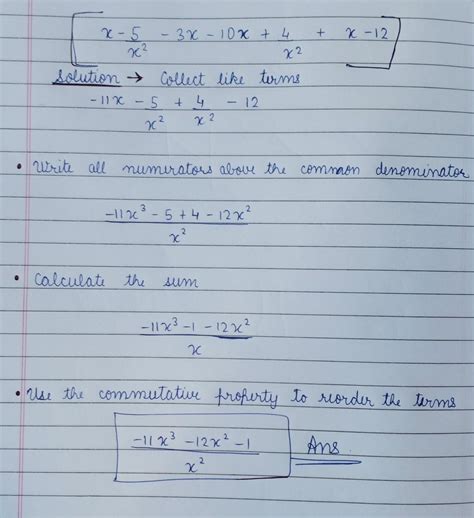 x - 5/x² - 3x - 10x + 4/x² + x - 12
Solution → Collect like terms
-11x - 5/x² + 4/x² - 12
• Write all numerators above the common denominator
-11x³ - 5 + 4 - 12x²
x²
• Calculate the sum
-11x³ - 1 - 12x²
x
• Use the commutative property to reorder the terms
-11x³ - 12x² - 1
x²
Ans